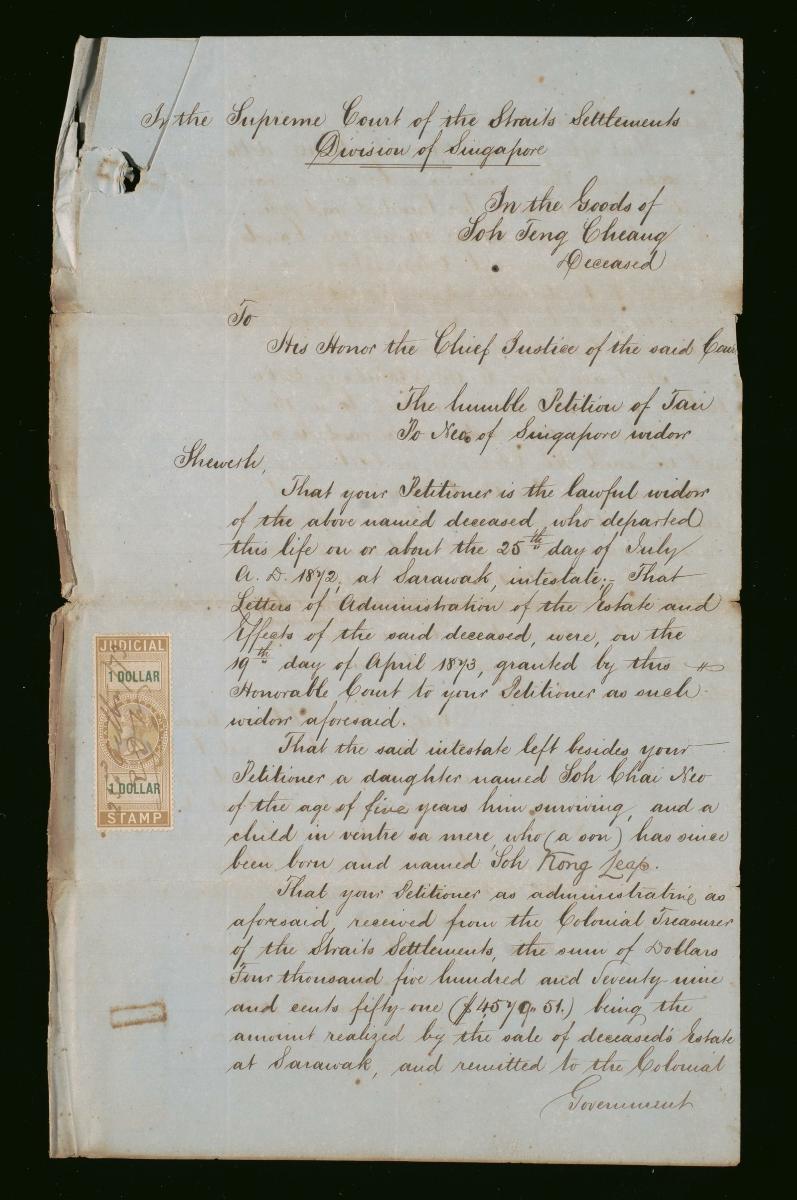 In the Supreme Court of the Straits Settlements
Division of Singapore
In the Goods of
Soh Teng Cheang
Deceased
To
His Honor the Chief Justice of the said Cour
The humble Petition of Tan
Po Neo of Singapore widow
Sheweth,
That your Petitioner is the lawful widow
of the above named deceased, who departed
this life on or about the 25th day of July
A. D. 1872, at Sarawak, intestate;- That
Letters of Administration of the Estate and
Effects of the said deceased, were, on the
19th day of April 1873, granted by this
Honorable Court to your Petitioner as such
widow aforesaid.
That the said intestate left besides your
Petitioner a daughter named Soh Chai Neo
of the age of five years him surviving, and a
child in ventre sa mere, who (a son) has since
been born and named Soh Kong Leap.
That your Petitioner as administratrix as
aforesaid, received from the Colonial Treasurer
of the Straits Settlements, the sum of Dollars
Four thousand five hundred and Seventy-nine
and cents fifty-one ($4579. 51.) being the
amount realized by the sale of deceased's Estate
at Sarawak, and remitted to the Colonial
Government
JUDICIAL
1 DOLLAR
1 DOLLAR
STAMP